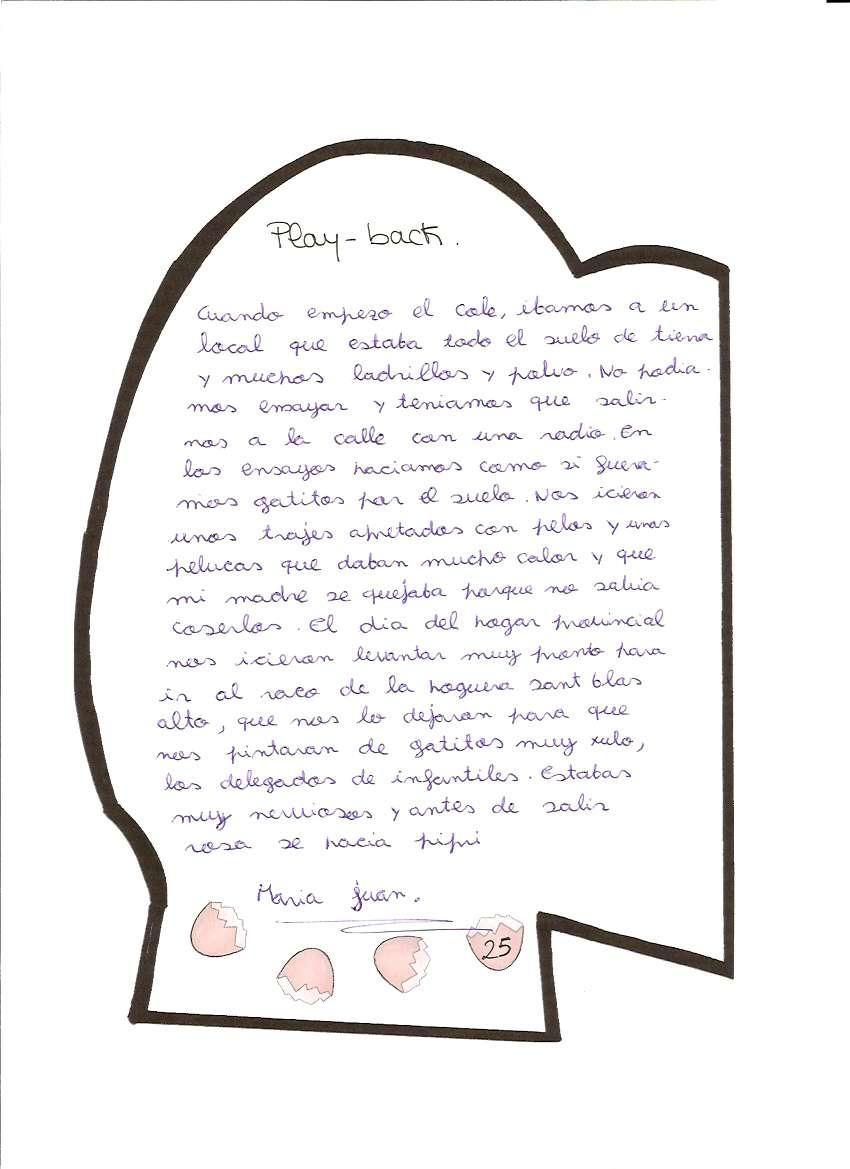 Play-back.
Cuando empezo el cole, ibamos a un
local que estaba todo el suelo de tierra
y muchos ladrillos y polvo. No podia-
mos ensayar y teniamos que salir-
nos a la calle con una radio. En
los ensayos haciamos como si fuera-
mos gatitos por el suelo. Nos icieron
unos trajes apretados con pelos y unas
pelucas que daban mucho calor y que
mi madre se quejaba porque no sabia
coserlos. El dia del hogar provincial
nos icieron levantar muy pronto para
ir al raco de la hoguera sant blas
alto, que nos lo dejaron para que
nos pintaran de gatitos muy xulo,
los delegados de infantiles. Estabas
muy nerviosos y antes de salir
rosa se hacia pipi
Maria Juan.
25